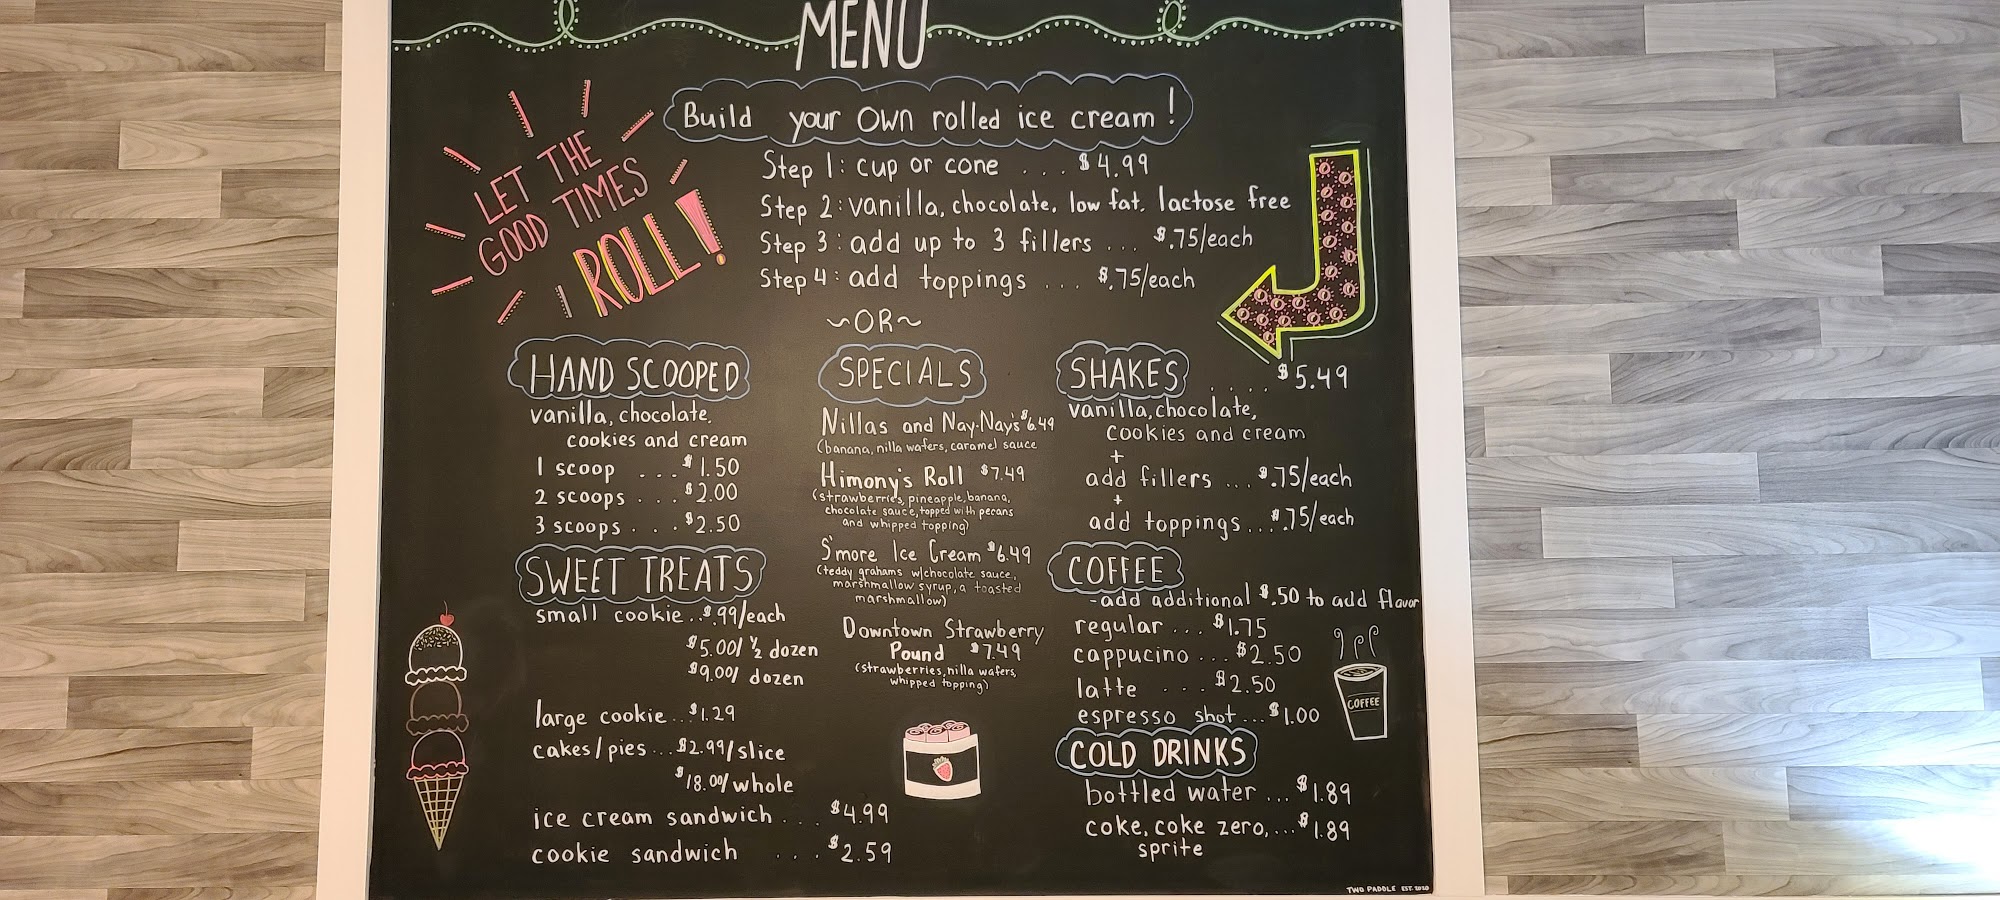 MENU
LET THE
GOOD TIMES
ROLL!
Build your own rolled ice cream!
Step 1: cup or cone ... $4.99
Step 2: vanilla, chocolate, low fat, lactose free
Step 3: add up to 3 fillers ... $.75/each
Step 4: add toppings ... $.75/each
~OR~
HAND SCOOPED
vanilla, chocolate,
cookies and cream
1 scoop ... $1.50
2 scoops ... $2.00
3 scoops ... $2.50
SWEET TREATS
small cookie .. $.99/each
$5.00/ ½ dozen
$9.00/ dozen
large cookie ... $1.29
cakes/pies ... $2.99/slice
$18.00/whole
ice cream sandwich ... $4.99
cookie sandwich ... $2.59
SPECIALS
Nillas and Nay-Nay's $6.49
(banana, nilla wafers, caramel sauce
Himony's Roll $7.49
(strawberries, pineapple, banana,
chocolate sauce, topped with pecans
and whipped topping)
S'more Ice Cream $6.49
(teddy grahams w/chocolate sauce,
marshmallow syrup, a toasted
marshmallow)
Downtown Strawberry
Pound $7.49
(strawberries, nilla wafers,
whipped topping)
SHAKES .... $5.49
vanilla, chocolate,
cookies and cream
+
add fillers ... $.75/each
+
add toppings ... $.75/each
COFFEE
-add additional $.50 to add flavor
regular ... $1.75
cappucino ... $2.50
latte ... $2.50
espresso shot ... $1.00
COFFEE
COLD DRINKS
bottled water ... $1.89
coke, coke zero, ... $1.89
sprite
TWO PADDLE EST. 2020